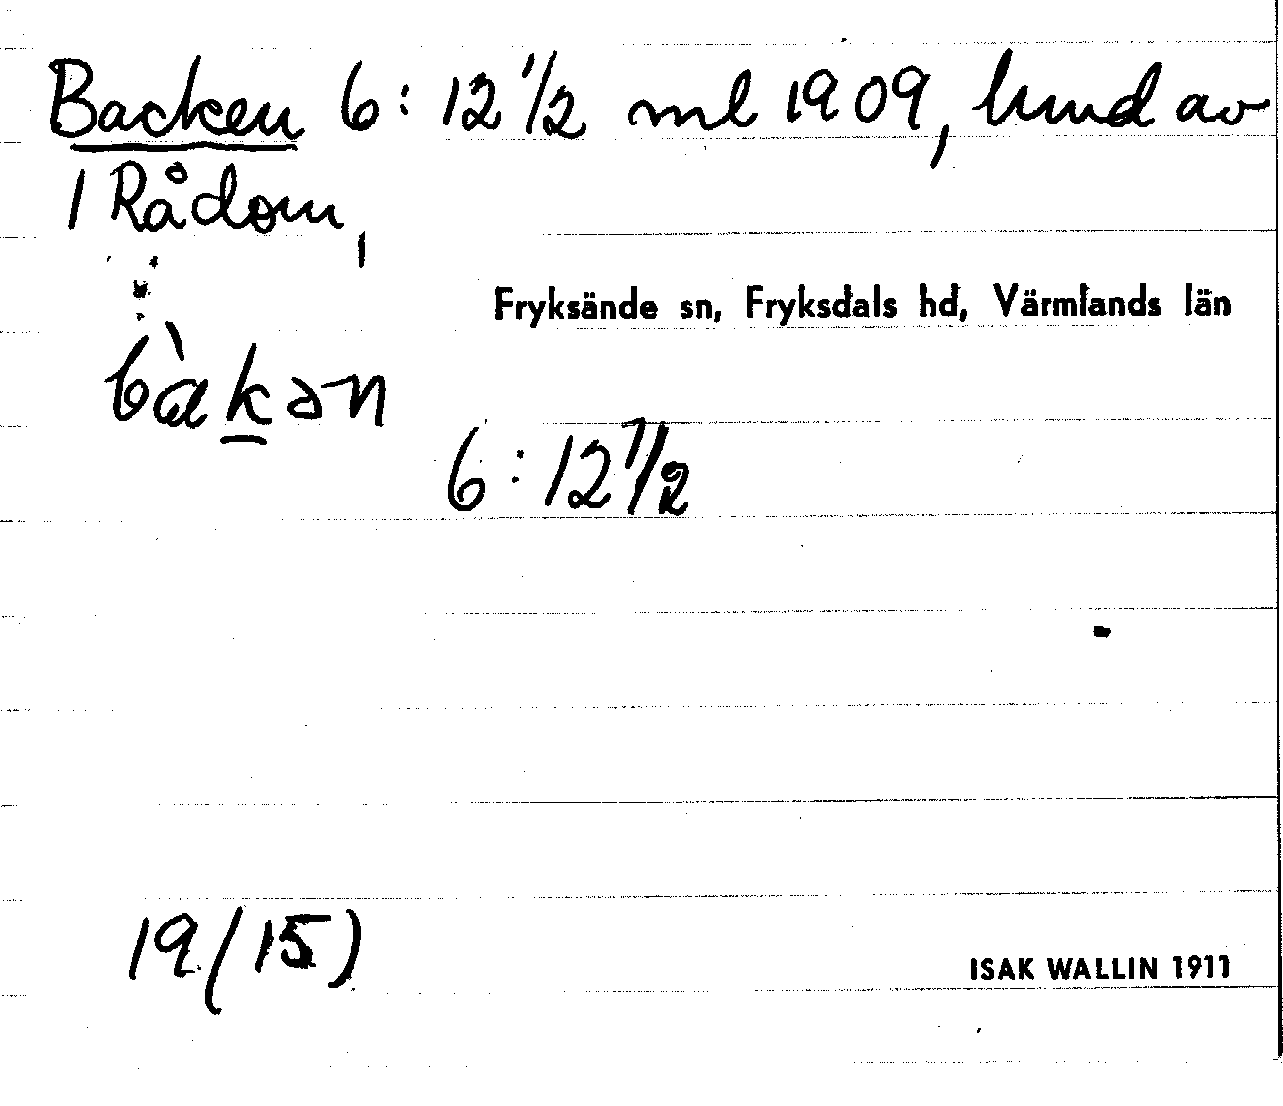 Backen 6:12 1/2 ml 1909, hmd av
1 Rådom,
Fryksände sn, Fryksdals hd, Värmlands län
bàkən
6:12 1/2
19(15)
ISAK WALLIN 1911